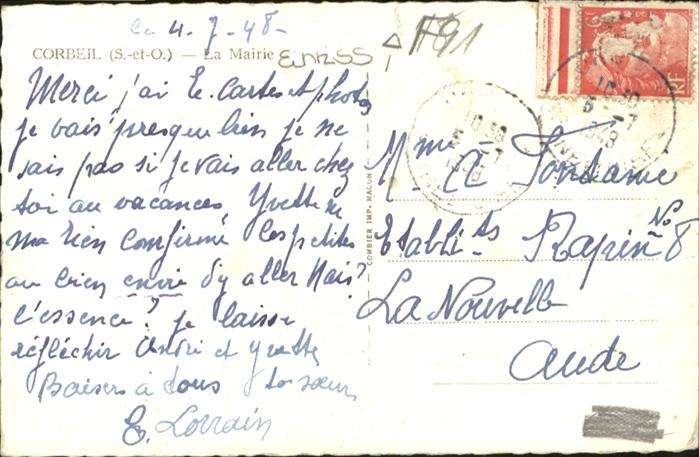 Ce 4-7-48-
F91
CORBEIL (S.-et-O.) — La Mairie
Merci j'ai Le. Cartes et photos
je vais presque bien je ne
sais pas si je vais aller chez
toi au vacances Yvette
ma rien confirmé les petites
au bien envie d'y aller Mais?
l'essence? je laisse
réfléchir André et Yvette
Baisers à tous ta sœur
E. Lorrain
COMBIER IMP. MACON
Mme A Fontanie
Etablits Rapin No 8
La Nouvelle
Aude
RF
10 30
5 - 7